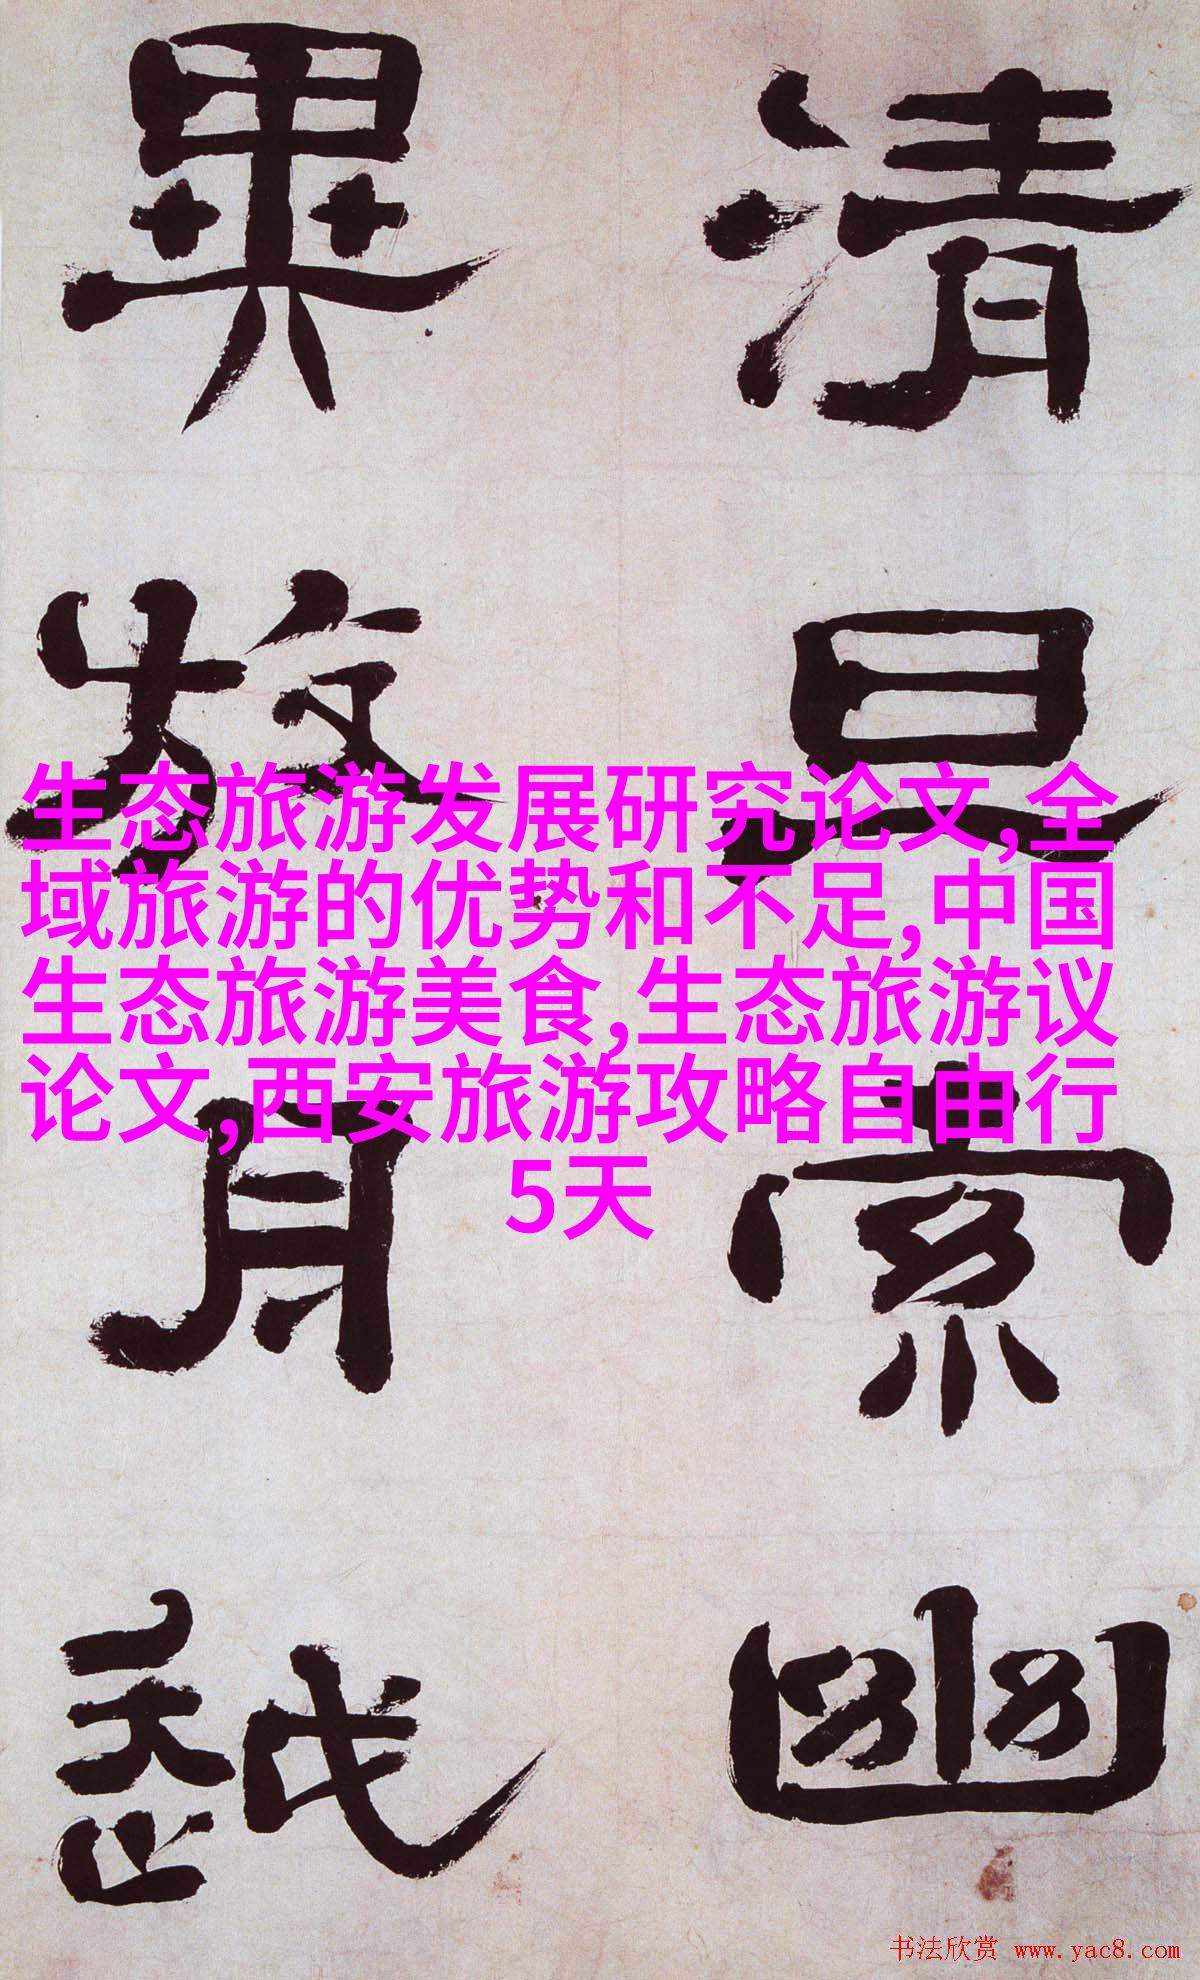 清旦索幽
異放舟越
生态旅游发展研究论文,全
域旅游的优势和不足,中国
生态旅游美食,生态旅游议
论文,西安旅游攻略自由行
5天
书法欣赏 www.yac8.com